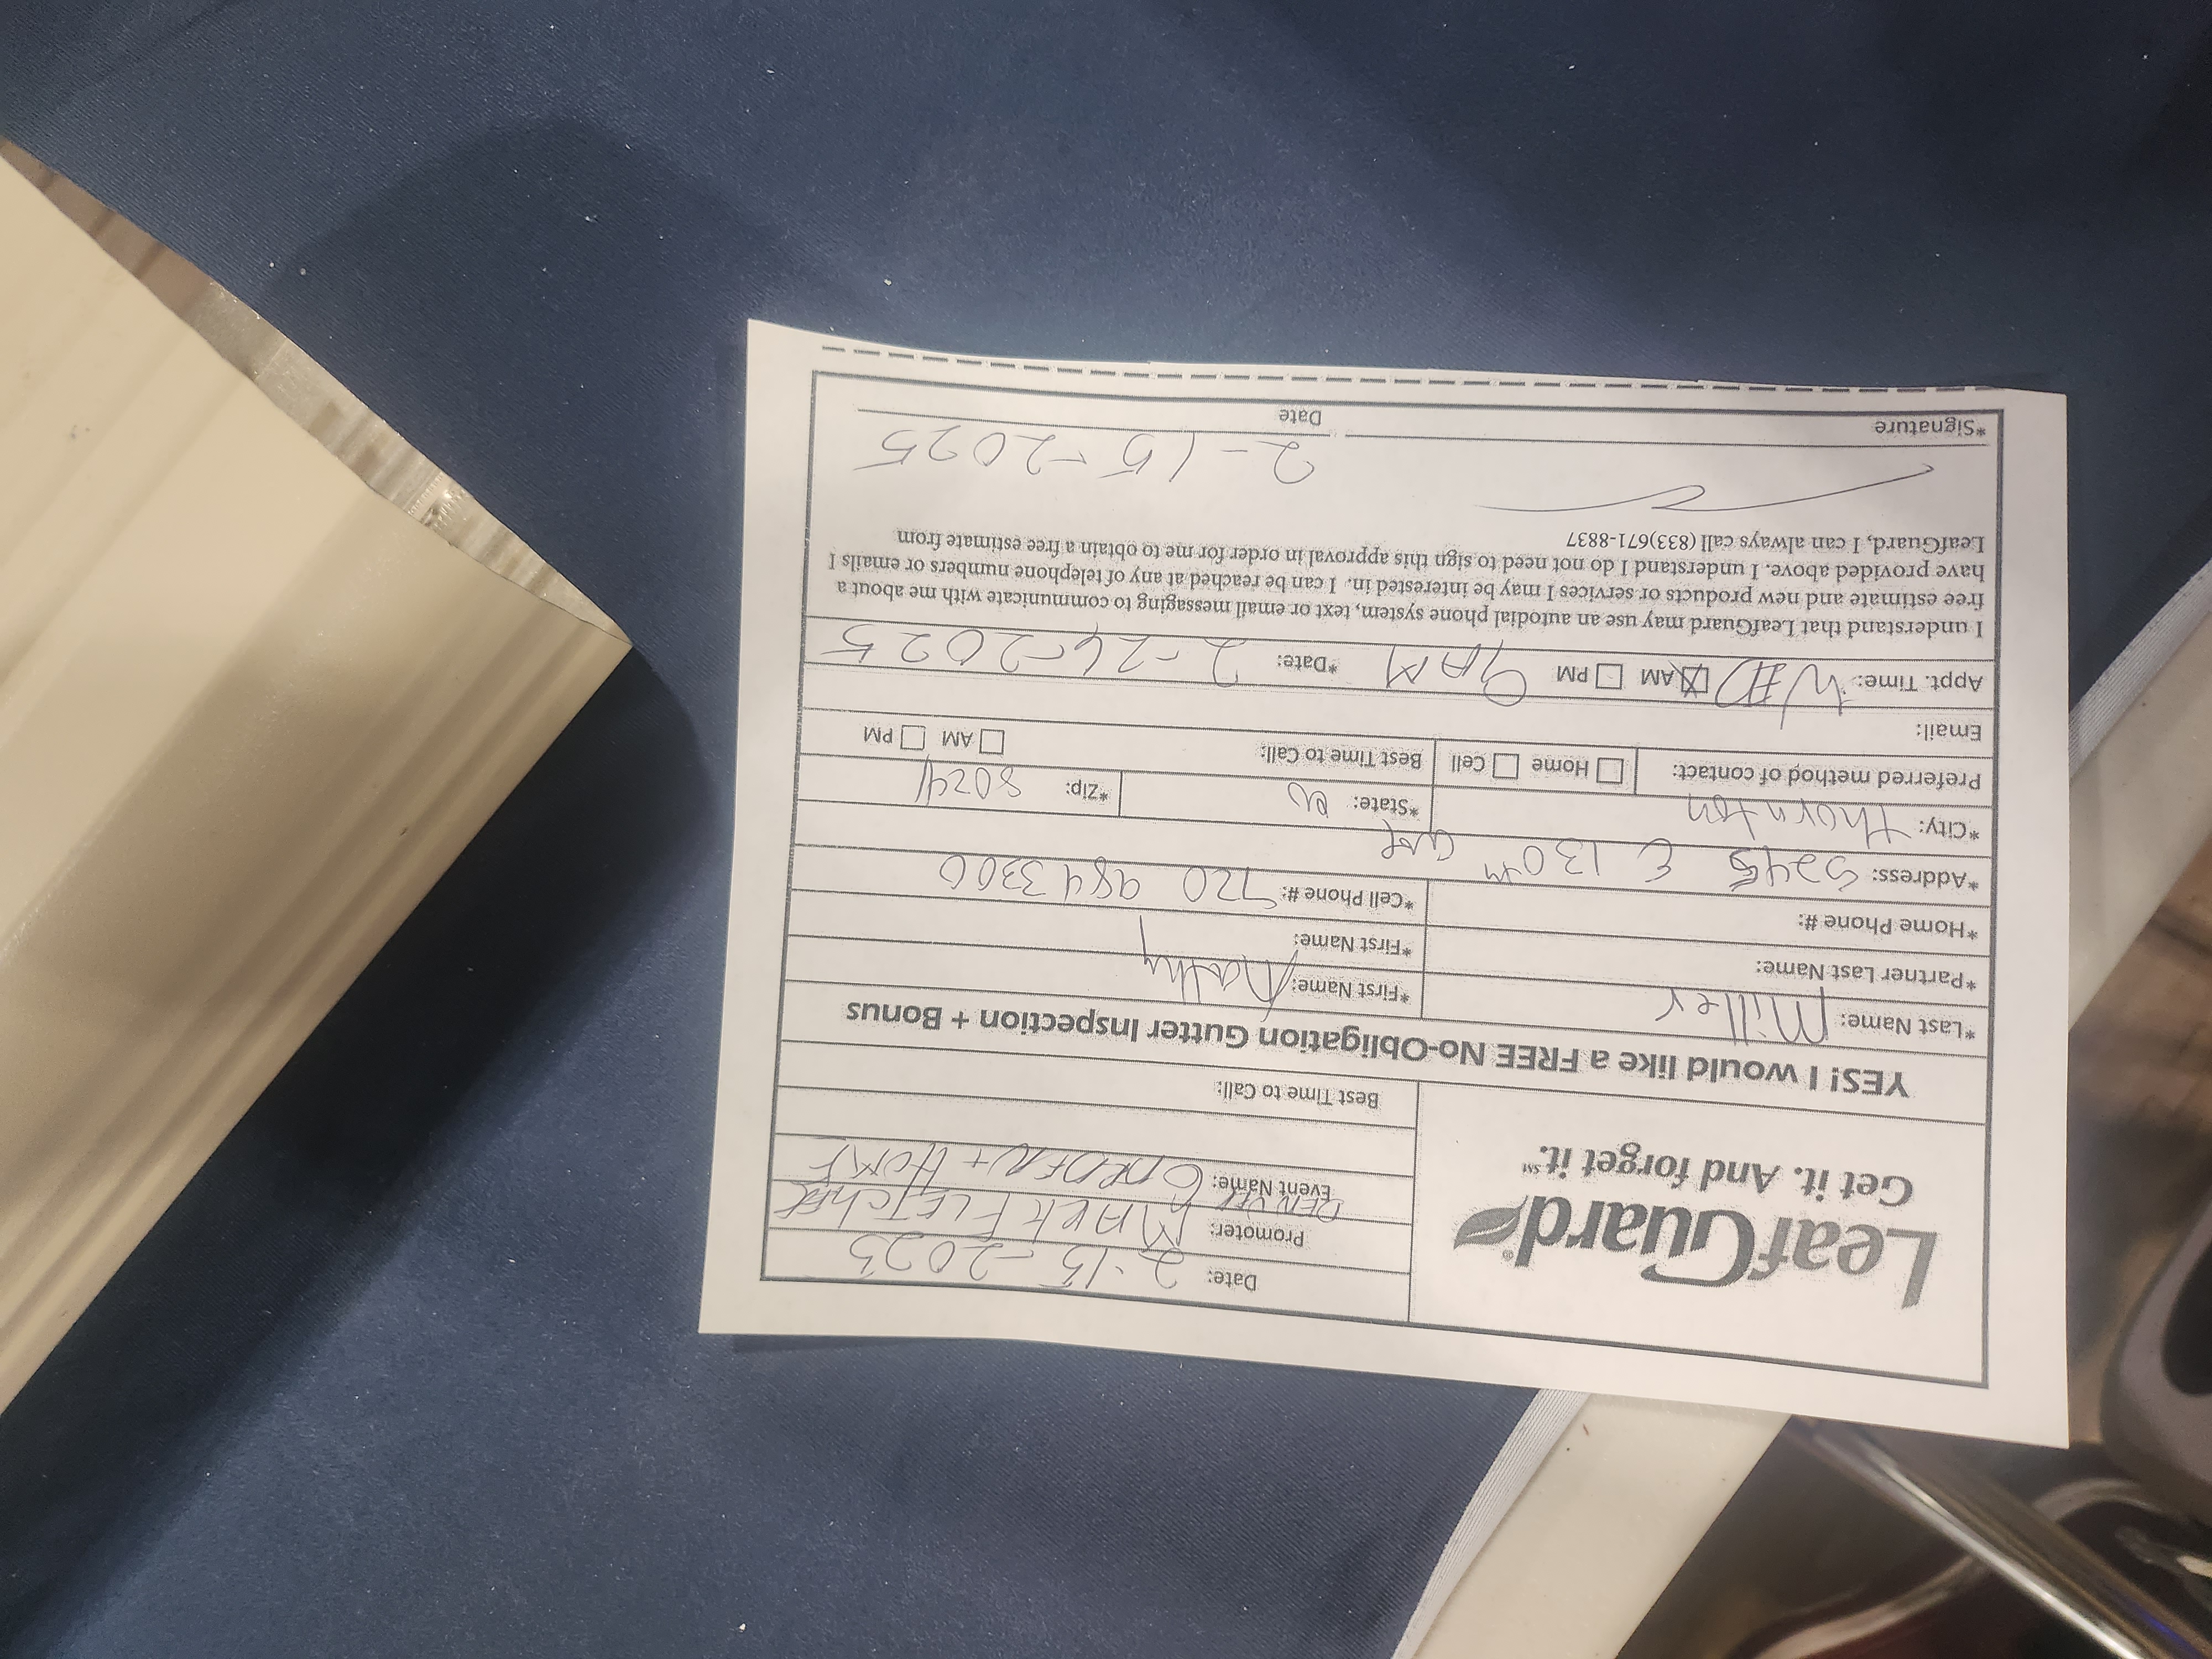 LeafGuard®
Get it. And forget it.℠
Date: 2-15-2025
Promoter: MARK FLETCHER
DENVER
Event Name: GARDEN + HOME
Best Time to Call:
YES! I would like a FREE No-Obligation Gutter Inspection + Bonus
*Last Name: Miller *First Name: Kathy
*Partner Last Name: *First Name:
*Home Phone #: *Cell Phone #: 720 984 3300
*Address: 5245 E 130th ave
*City: Thornton *State: co *Zip: 80241
Preferred method of contact: ☐ Home ☐ Cell Best Time to Call: ☐ AM ☐ PM
Email:
Appt. Time: WED ☒ AM ☐ PM 9AM *Date: 2-26-2025
I understand that LeafGuard may use an autodial phone system, text or email messaging to communicate with me about a
free estimate and new products or services I may be interested in. I can be reached at any of telephone numbers or emails I
have provided above. I understand I do not need to sign this approval in order for me to obtain a free estimate from
LeafGuard, I can always call (833)671-8837
2-15-2025
*Signature Date